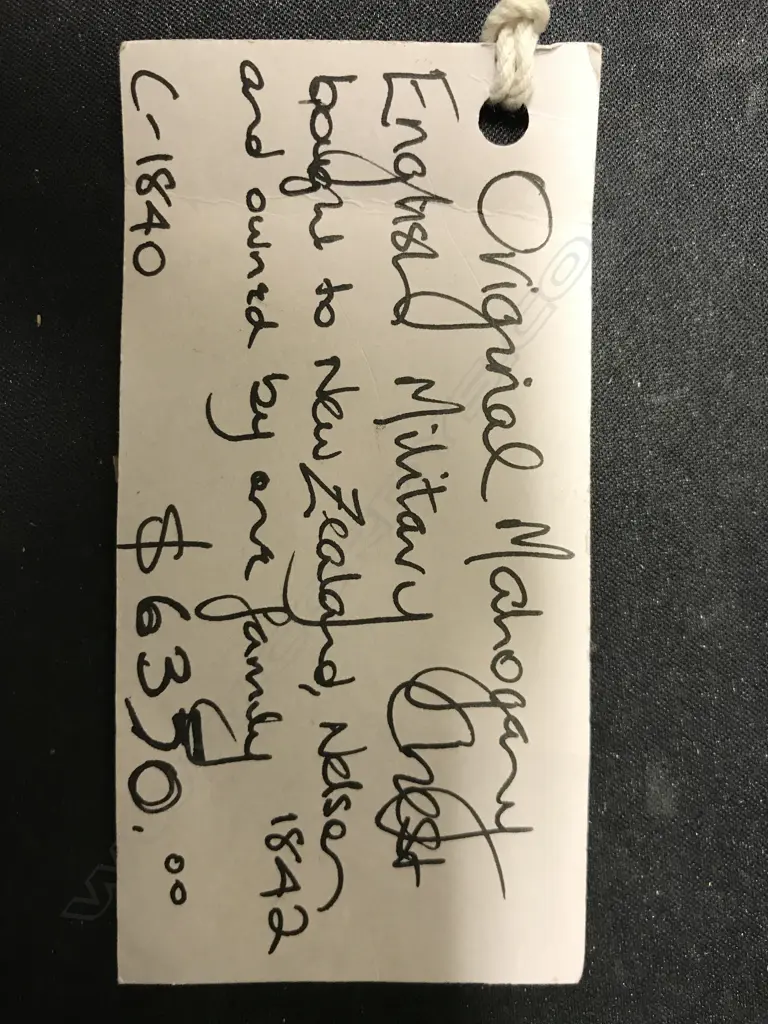 Original Mahogany
English Military Chest
bought to New Zealand, Nelson
1842
and owned by one family
C-1840 $6350.00